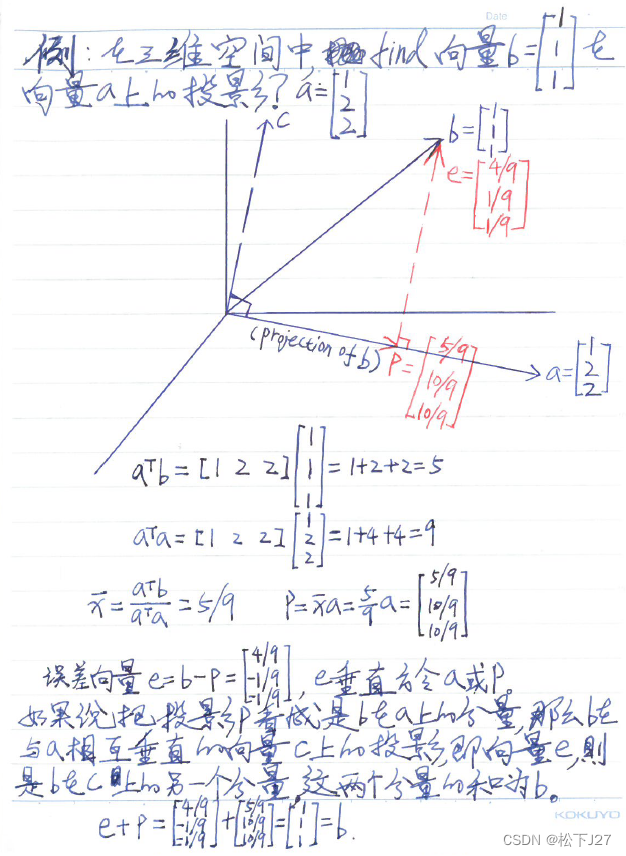 Date
例:在三维空间中,find向量b=[1 1 1]在
向量a上的投影? a=[1 2 2]
C
b=[1 1 1]
e=[4/9 1/9 1/9]
(projection of b)
P=[5/9 10/9 10/9]
a=[1 2 2]
aᵀb=[1 2 2][1 1 1]=1+2+2=5
aᵀa=[1 2 2][1 2 2]=1+4+4=9
x̄=aᵀb/aᵀa=5/9 P=x̄a=5/9a=[5/9 10/9 10/9]
误差向量e=b-P=[4/9 -1/9 -1/9],e垂直于a或P。
如果说把投影P看成是b在a上的分量,那么b在
与a相互垂直的向量C上的投影,即向量e,则
是b在C上的另一个分量,这两个分量的和为b。
e+P=[4/9 -1/9 -1/9]+[5/9 10/9 10/9]=[1 1 1]=b.
KOKUYO
CSDN @松下J27